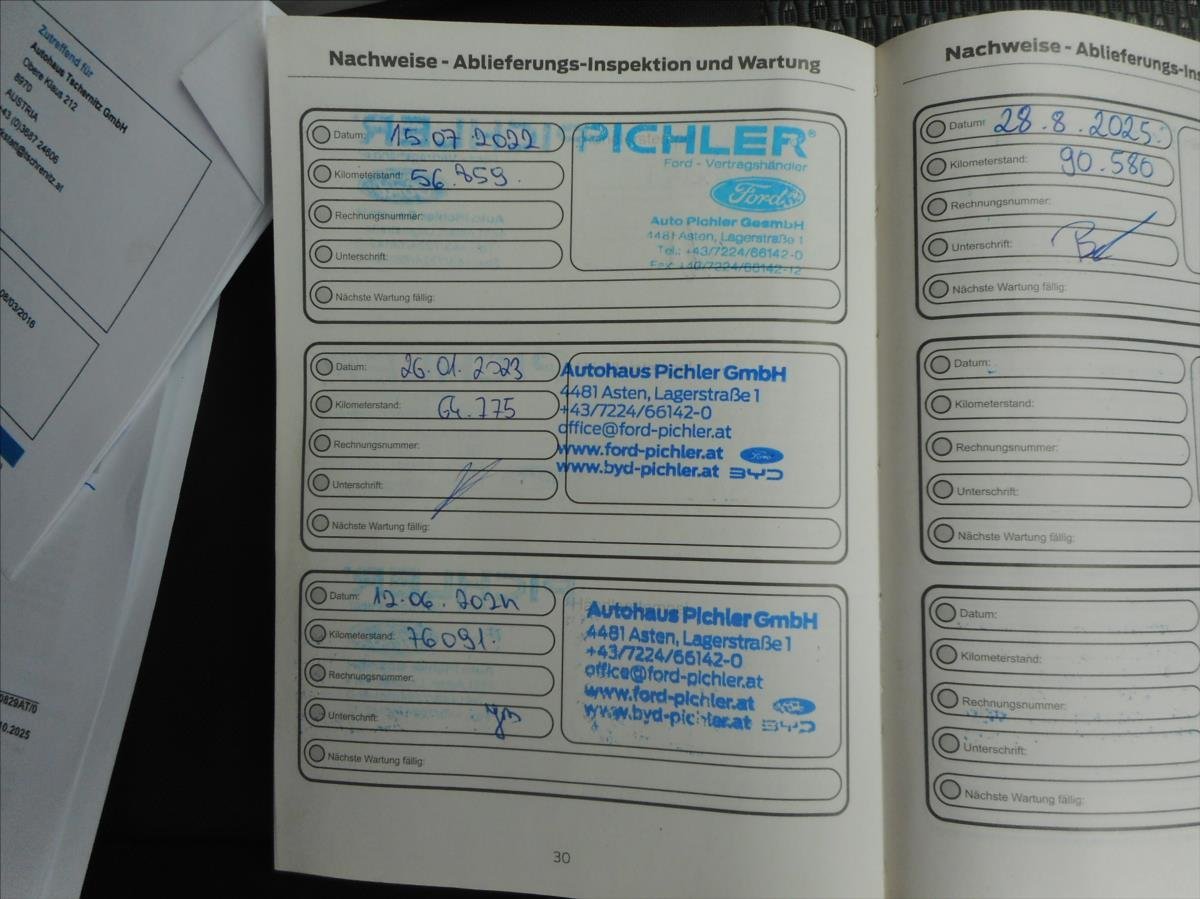 Zutreffend für
Autohaus Tschernitz GmbH
Obere Klaus 212
8970
AUSTRIA
+43 (0)3687 24606
08/03/2016
0829AT/0
10.2025
Nachweise - Ablieferungs-Inspektion und Wartung
Datum: 15 07 2022
Kilometerstand: 56.859.
Rechnungsnummer:
Unterschrift:
Nächste Wartung fällig:
PICHLER®
Ford - Vertragshändler
Ford
Auto Pichler GesmbH
4481 Asten, Lagerstraße 1
Tel.: +43/7224/66142-0
Fax: +43/7224/66142-12
Datum: 26.01.2023
Kilometerstand: 64.775
Rechnungsnummer:
Unterschrift:
Nächste Wartung fällig:
Autohaus Pichler GmbH
4481 Asten, Lagerstraße 1
+43/7224/66142-0
office@ford-pichler.at
www.ford-pichler.at Ford
www.byd-pichler.at BYD
Datum: 12.06.2024
Kilometerstand: 76091.
Rechnungsnummer:
Unterschrift:
Nächste Wartung fällig:
Autohaus Pichler GmbH
4481 Asten, Lagerstraße 1
+43/7224/66142-0
office@ford-pichler.at
www.ford-pichler.at Ford
www.byd-pichler.at BYD
30
Nachweise - Ablieferungs-Ins
Datum: 28.8.2025.
Kilometerstand: 90.580
Rechnungsnummer:
Unterschrift:
Nächste Wartung fällig:
Datum:
Kilometerstand:
Rechnungsnummer:
Unterschrift:
Nächste Wartung fällig:
Datum:
Kilometerstand:
Rechnungsnummer:
Unterschrift:
Nächste Wartung fällig: